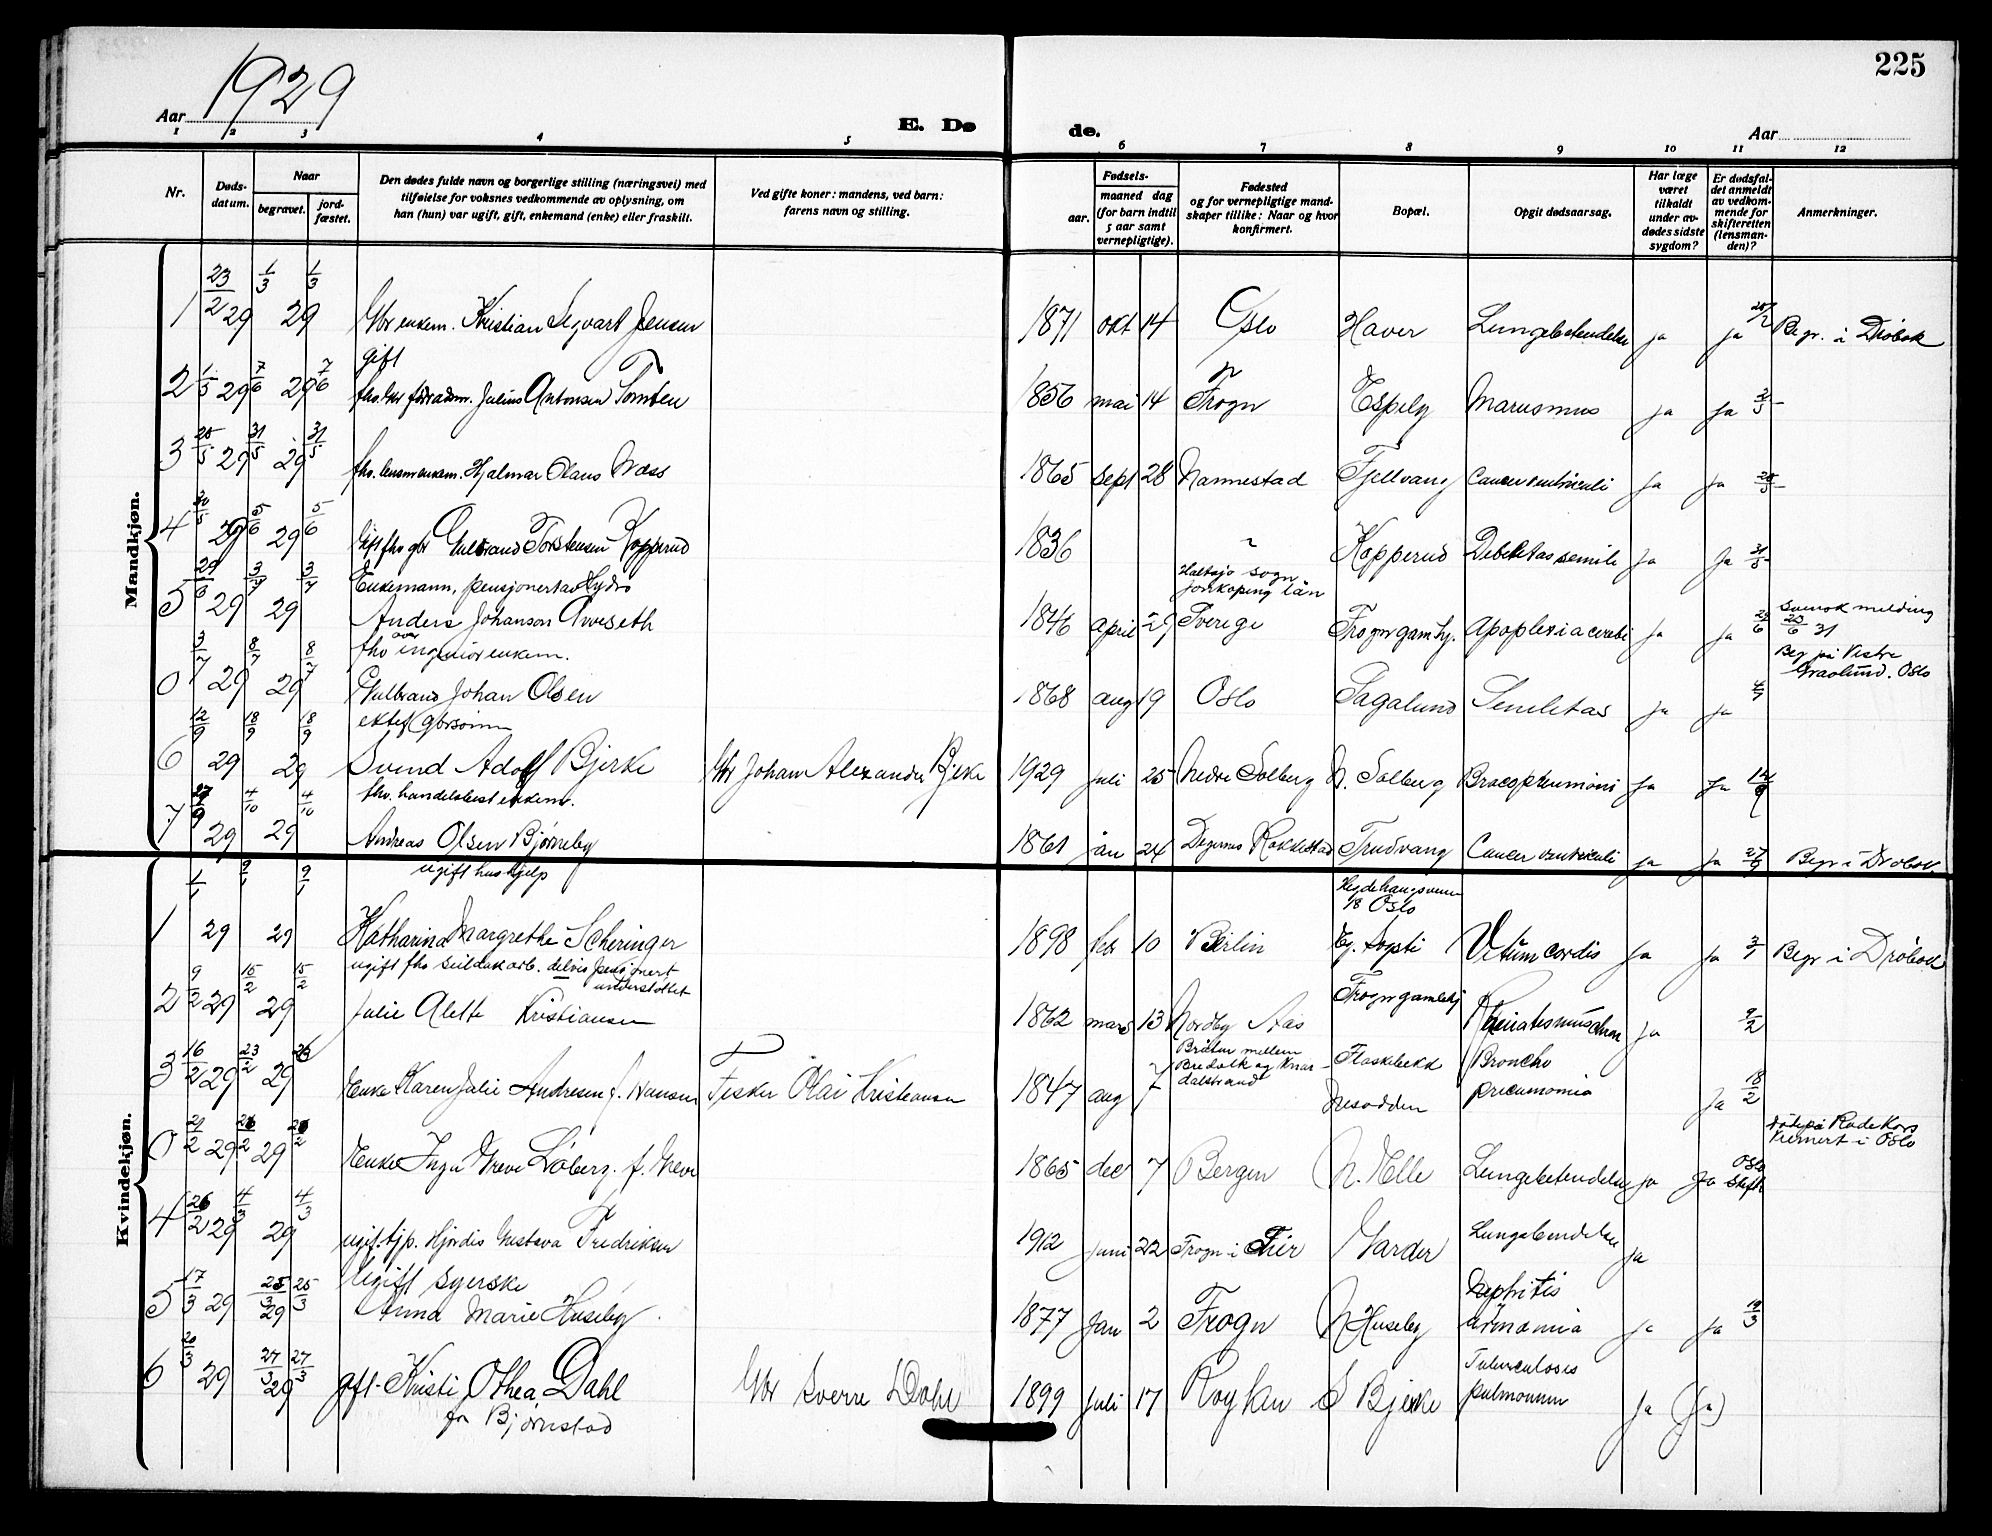 225
Aar 1929
E. Dø
de.
Aar
1 2 3 4 5 6 7 8 9 10 11 12
Nr.
Døds-
datum.
Naar
begravet.
jord-
fæstet.
Den dødes fulde navn og borgerlige stilling (næringsvei) med
tilføielse for voksnes vedkommende av oplysning, om
han (hun) var ugift, gift, enkemand (enke) eller fraskilt.
Ved gifte koner: mandens, ved barn:
farens navn og stilling.
Fødsels-
aar.
maaned dag
(for barn indtil
5 aar samt
vernepligtige).
Fødested
og for vernepligtige mand-
skaper tillike: Naar og hvor
konfirmert.
Bopæl.
Opgit dødsaarsag.
Har læge
været
tilkaldt
under av-
dødes sidste
sygdom?
Er dødsfal-
det anmeldt
av vedkom-
mende for
skifteretten
(lensman-
den)?
Anmerkninger.
Mandkjøn.
1 23/2 29 1/3 29 1/3 Gbr enkem. Kristian Sigvart Jensen 1871 okt 14 Oslo Haver Lungebetendelse ja ja Begr. i Drøbak
gift
2 1/5 29 7/6 29 7/6 Julius Antonsen Tomten 1856 mai 14 Frogn Espely Marasmus ja ja 2/5
3 25/5 29 31/5 29 31/5 fho. lensm enkem. Hjalmar Olaus Næss 1865 sept 28 Nannestad Fjellvang Cancer ventriculi ja ja 28/5
4 30/5 29 5/6 29 5/6 Gift fho gbr Gulbrand Torstensen Kopperud 1836 Kopperud ja ja 31/5
5 29/6 29 3/7 29 3/7 Enkemann, pensjonert
Anders Johanson 1846 april 29 sogn
Jönköping län
Sverige Frogn gamlhj. Apoplexia cerebri ja ja 29/6 Svensk melding
23/6 31
0 3/7 29 8/7 29 8/7 fho over ingeniør enkem.
Gulbrand Johan Olsen 1868 aug 19 Oslo Sagalund Senilitas ja ja 4/7 Beg på Vestre
Gravlund. Oslo
6 12/9 29 18/9 29 18/9 ektef. gbrsønn
Svend Adolf Bjerke Gbr Johan Alexander Bjerke 1929 juli 25 Nedre Solberg N. Solberg ja ja 12/9
7 29 4/10 29 4/10 fho. handelsbest enkem.
Andreas Olsen Bjørneby 1861 jan 24 Degernes Rakkestad Trudvang Cancer ventriculi ja ja 27/9 Begr i Drøbak.
Kvindekjøn.
1 1/1 29 9/1 29 9/1 ugift hushjelp
Katharina Margrethe Scheringer 1898 feb 10 Berlin
18 Oslo
Vitium cordis ja ja 3/1 Begr i Drøbak
2 9/2 29 15/2 29 15/2 ugift fho delvis pensjonert
understøttet
Julie Alette Kristiansen 1862 mars 13 Nordby Aas Frogn gamlehj ja 9/2
3 16/2 29 23/2 29 23 Enke Karen Julie Andresen f. Hansen Fisker Olai Kristiansen 1847 aug 7 Bråten mellem
Bredvik og Knar-
dalstrand Flaskebekk
Nesodden Broncho
pneumonia ja 18/2
0 21/2 29 26/2 29 26/2 Enke Inga Greve Løberg. f. Greve 1865 dec 7 Bergen N. Elle Lungebetendelse ja ja Oslo
skifte død på Røde Kors
i Oslo
4 26/2 29 4/3 29 4/3 ugift tjp. Hjørdis Gustava Fredriksen 1912 juni 22 Frogn i Lier Garder ja
5 17/3 29 25/3 29 25/3 Ugift syerske
Anna Marie Huseby 1877 Jan 2 Frogn N Huseby Nephritis
uræmia ja ja 19/3
6 20/3 29 27/3 29 27/3 gift. Kristi Othea Dahl
fra Bjørnstad Gbr Sverre Dahl 1899 juli 17 Røyken S Bjerke Tuberculosis
pulmonum ja (ja)